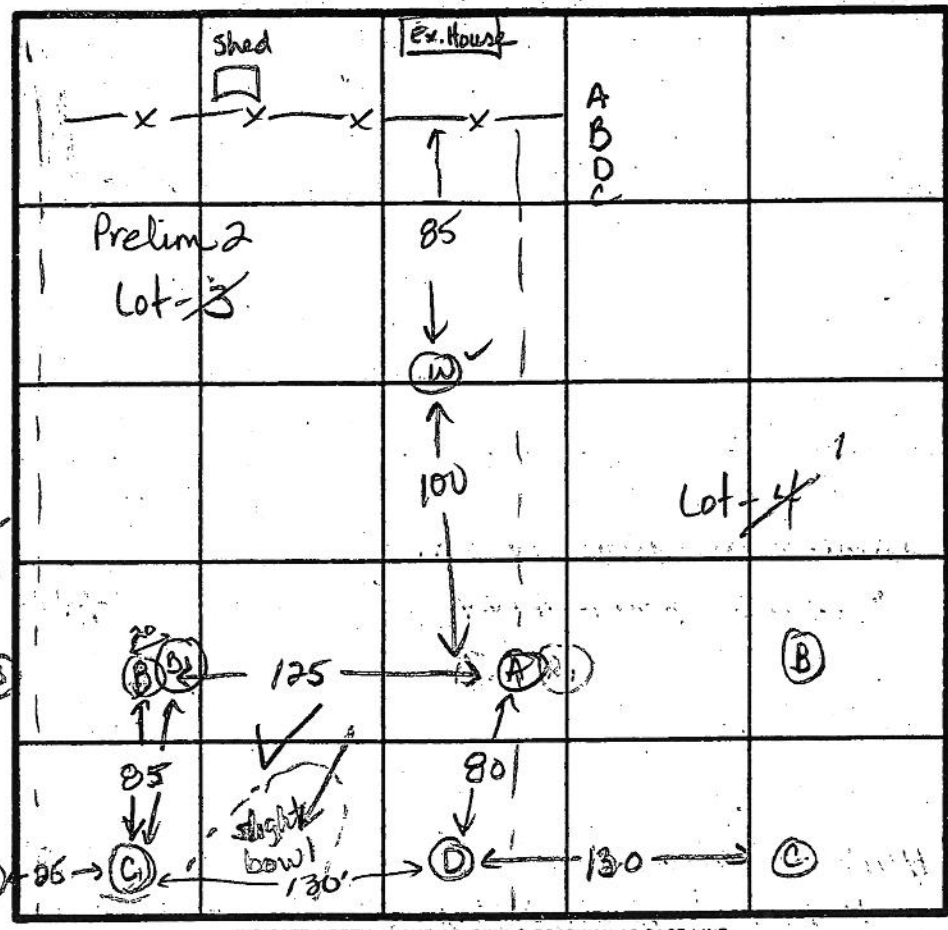 Shed
Ex. House
A
B
D
C
Prelim 2
Lot - 3
85
W
100
1
Lot - 4
20
B
B1
125
A
B
85
80
slight
bowl
C1
130'
D
130
C